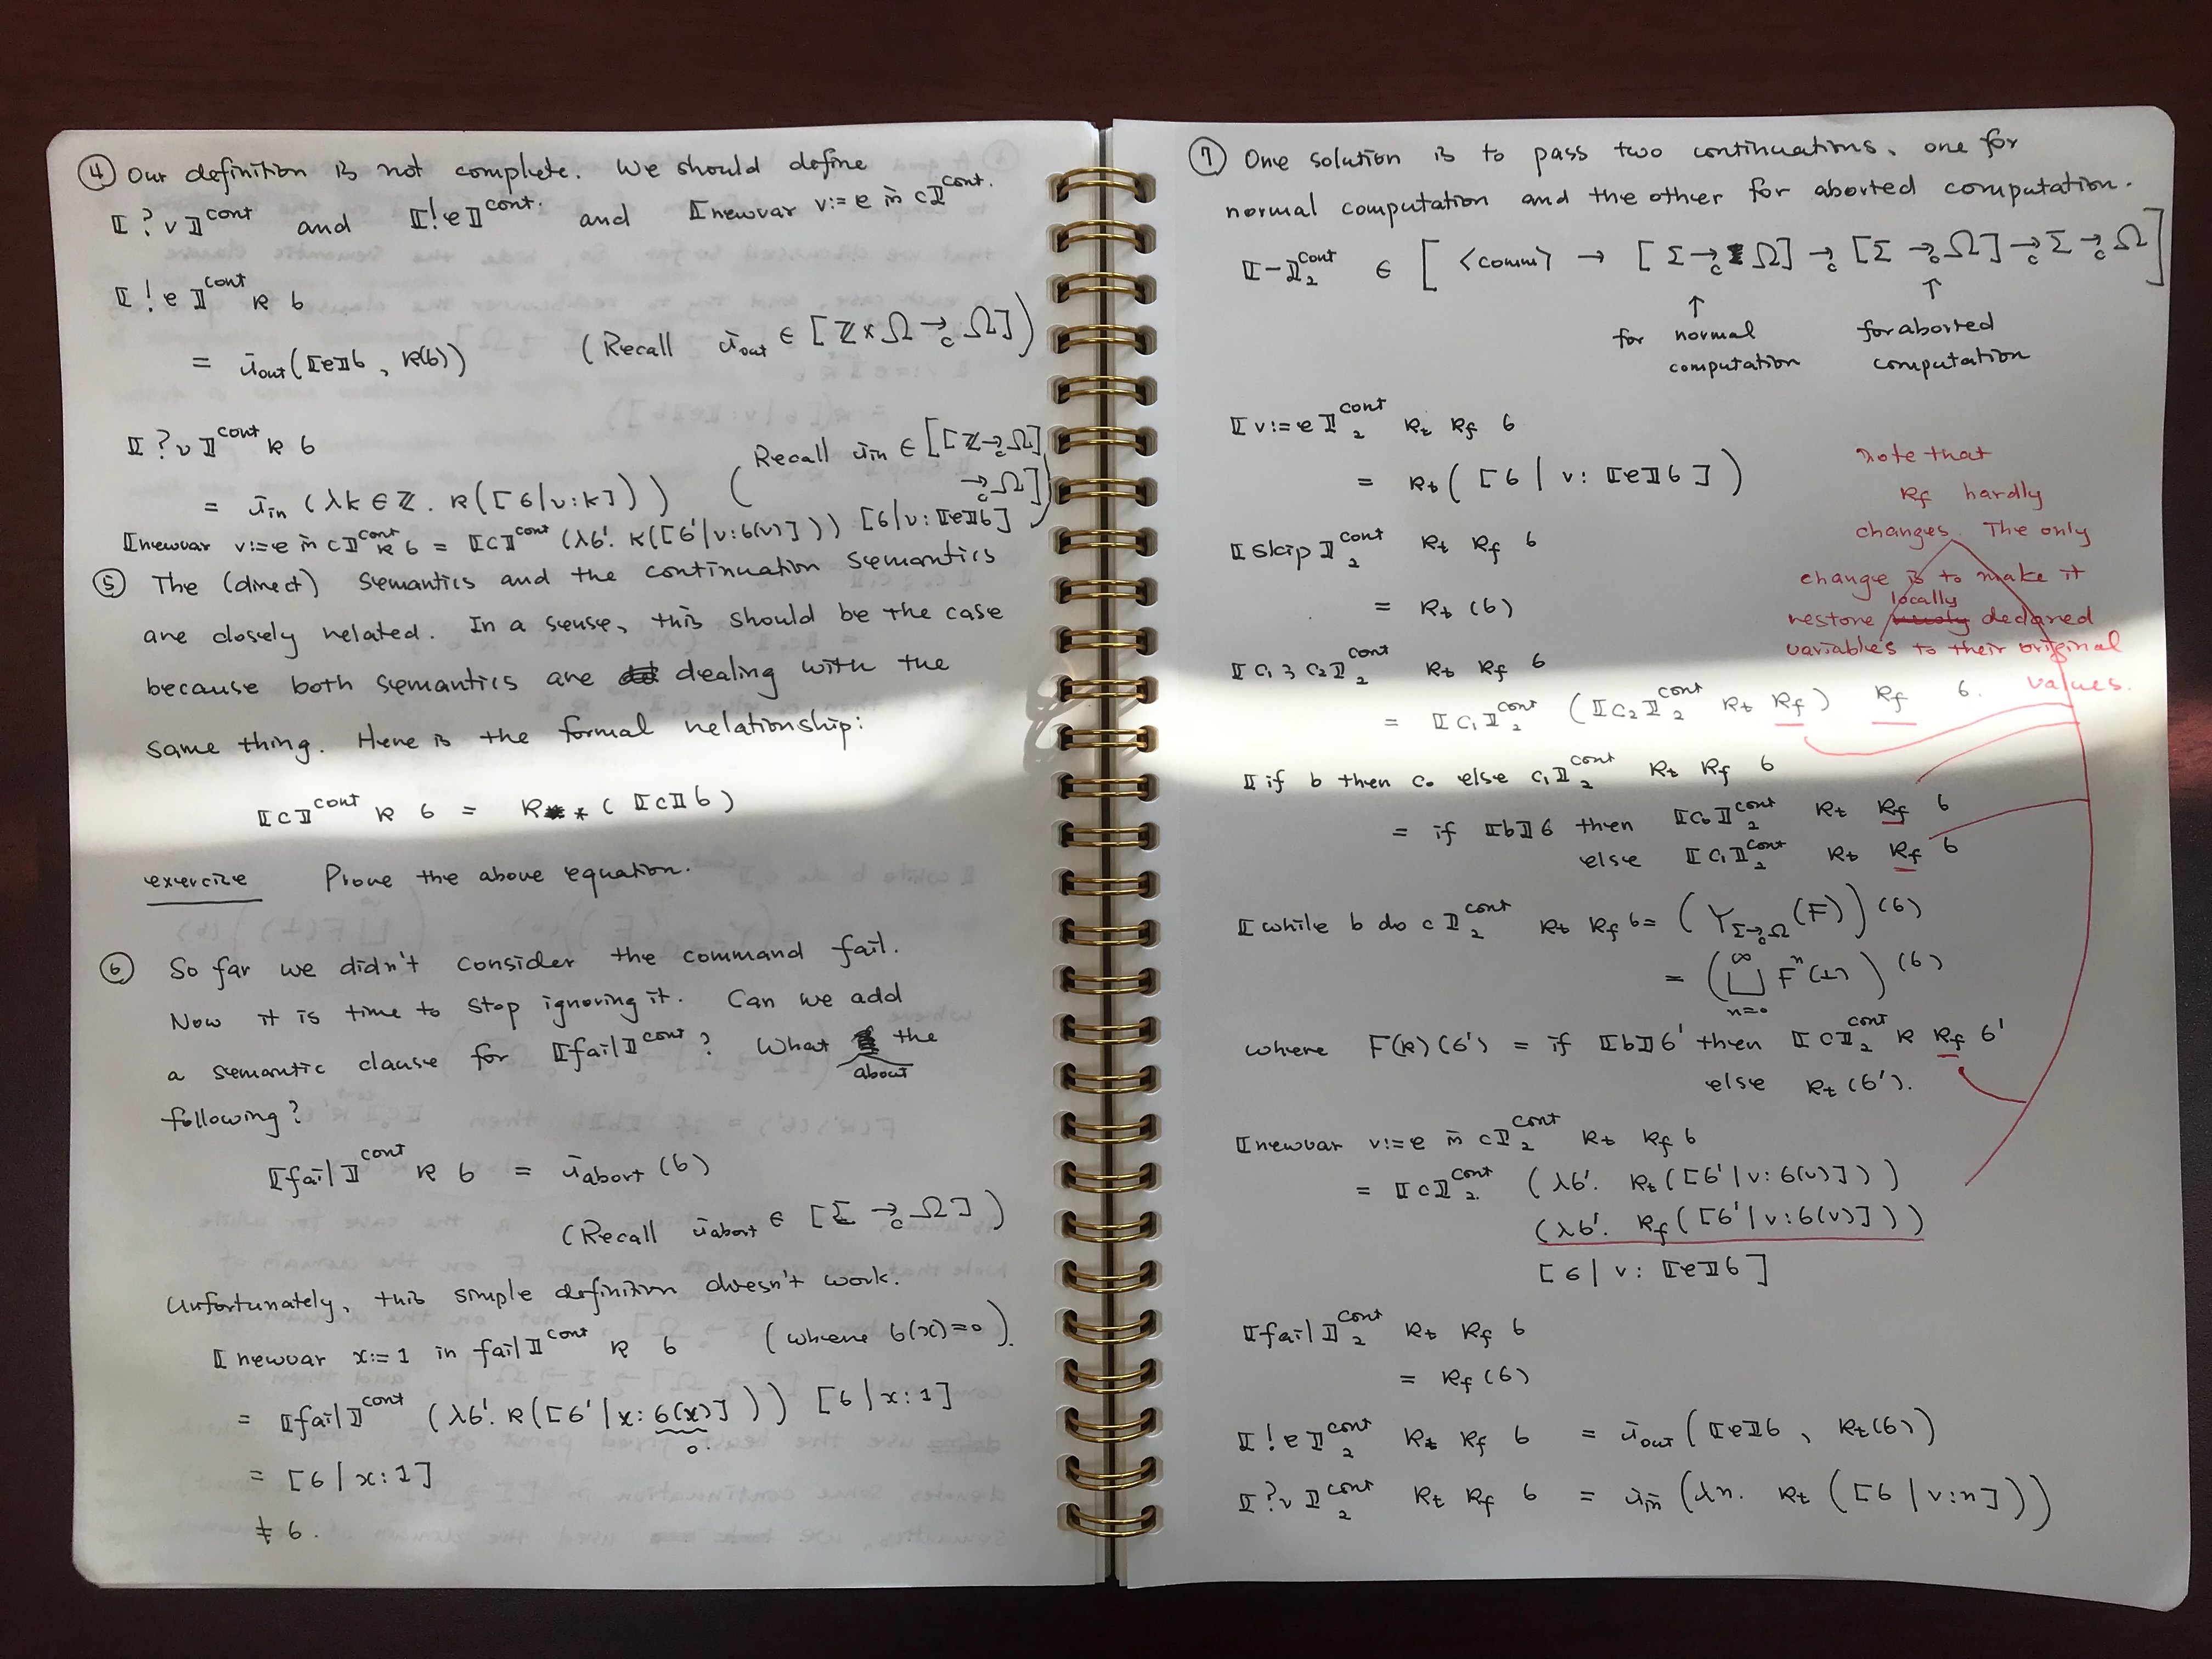 ④ Our definition is not complete. We should define
⟦?v⟧^cont and ⟦!e⟧^cont. and ⟦newvar v:=e in c⟧^cont.
⟦!e⟧^cont κ σ
= ι_out(⟦e⟧σ, κ(σ)) (Recall ι_out ∈ [ℤ×Ω →_c Ω])
⟦?v⟧^cont κ σ
= ι_in (λk∈ℤ. κ([σ|v:k])) (Recall ι_in ∈ [[ℤ→_c Ω] →_c Ω])
⟦newvar v:=e in c⟧^cont κ σ = ⟦c⟧^cont (λσ'. κ([σ'|v:σ(v)])) [σ|v:⟦e⟧σ]
⑤ The (direct) semantics and the continuation semantics
are closely related. In a sense, this should be the case
because both semantics are dealing with the
same thing. Here is the formal relationship:
⟦c⟧^cont κ σ = κ_* (⟦c⟧σ)
exercize Prove the above equation.
⑥ So far we didn't consider the command fail.
Now it is time to stop ignoring it. Can we add
a semantic clause for ⟦fail⟧^cont? What about the
following?
⟦fail⟧^cont κ σ = ι_abort(σ)
(Recall ι_abort ∈ [Σ →_c Ω])
Unfortunately, this simple definition doesn't work.
⟦newvar x:=1 in fail⟧^cont κ σ (where σ(x)=0).
= ⟦fail⟧^cont (λσ'. κ([σ'|x:σ(x)])) [σ|x:1]
0.
= [σ|x:1]
≠ σ.
⑦ One solution is to pass two continuations, one for
normal computation and the other for aborted computation.
⟦-⟧_2^cont ∈ [⟨comm⟩ → [Σ→_c Ω] →_c [Σ →_c Ω] →_c Σ →_c Ω]
↑ ↑
for normal computation for aborted computation
⟦v:=e⟧_2^cont κ_t κ_f σ
= κ_t([σ|v:⟦e⟧σ])
note that
κ_f hardly
changes. The only
change is to make it
restore locally declared
variables to their original
values.
⟦skip⟧_2^cont κ_t κ_f σ
= κ_t(σ)
⟦c_1; c_2⟧_2^cont κ_t κ_f σ
= ⟦c_1⟧_2^cont (⟦c_2⟧_2^cont κ_t κ_f) κ_f σ.
⟦if b then c_0 else c_1⟧_2^cont κ_t κ_f σ
= if ⟦b⟧σ then ⟦c_0⟧_2^cont κ_t κ_f σ
else ⟦c_1⟧_2^cont κ_t κ_f σ
⟦while b do c⟧_2^cont κ_t κ_f σ = (Y_{Σ→_c Ω}(F))(σ)
= (⊔_{n=0}^∞ F^n(⊥))(σ)
where F(κ)(σ') = if ⟦b⟧σ' then ⟦c⟧_2^cont κ κ_f σ'
else κ_t(σ').
⟦newvar v:=e in c⟧_2^cont κ_t κ_f σ
= ⟦c⟧_2^cont (λσ'. κ_t([σ'|v:σ(v)]))
(λσ'. κ_f([σ'|v:σ(v)]))
[σ|v:⟦e⟧σ]
⟦fail⟧_2^cont κ_t κ_f σ
= κ_f(σ)
⟦!e⟧_2^cont κ_t κ_f σ = ι_out(⟦e⟧σ, κ_t(σ))
⟦?v⟧_2^cont κ_t κ_f σ = ι_in(λn. κ_t([σ|v:n]))